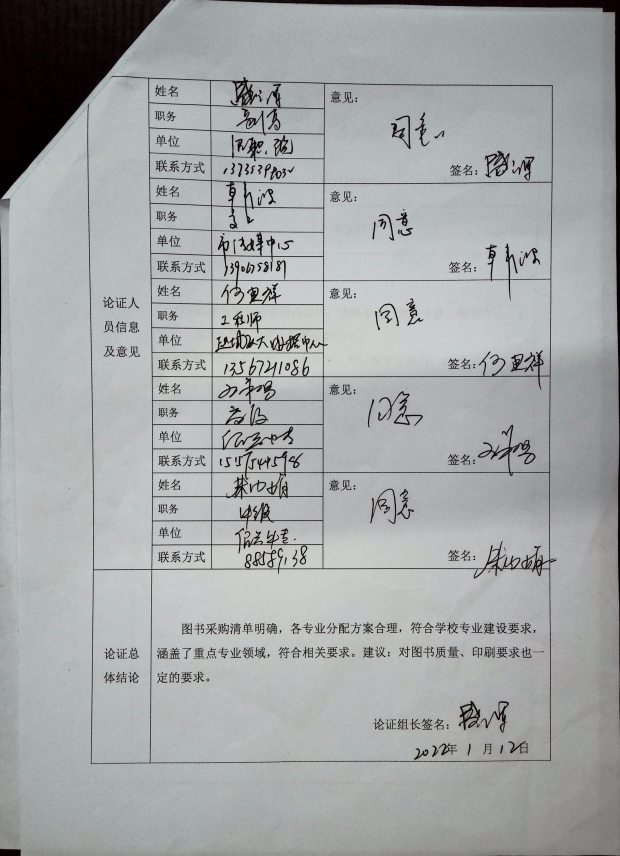 姓名
意见：
职务 副高
同意
单位
联系方式
签名：
姓名
意见：
职务
同意
单位 市传媒中心
联系方式 13906758181
签名：
姓名 何里祥
意见：
职务 工程师
同意
单位 越城区大数据中心
联系方式 13567211086
签名：何里祥
姓名
意见：
职务 高级
同意
单位
联系方式
签名：
姓名
意见：
职务 中级
同意
单位
联系方式 88589138
签名：
论证人
员信息
及意见
图书采购清单明确，各专业分配方案合理，符合学校专业建设要求，
涵盖了重点专业领域，符合相关要求。建议：对图书质量、印刷要求也一
定的要求。
论证总
体结论
论证组长签名：
2022年 1 月 12日